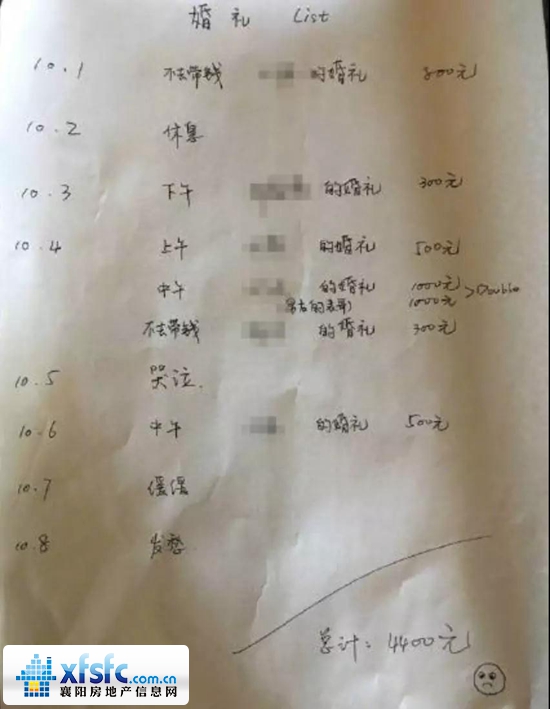 婚礼 List
10.1 不去带钱 的婚礼 800元
10.2 休息
10.3 下午 的婚礼 300元
10.4 上午 的婚礼 500元
中午 的婚礼 1000元
的表哥 1000元 >Double
不去带钱 的婚礼 300元
10.5 哭泣.
10.6 中午 的婚礼 500元
10.7
10.8 发愁.
总计: 4400元
xfsfc.com.cn
襄阳房地产信息网